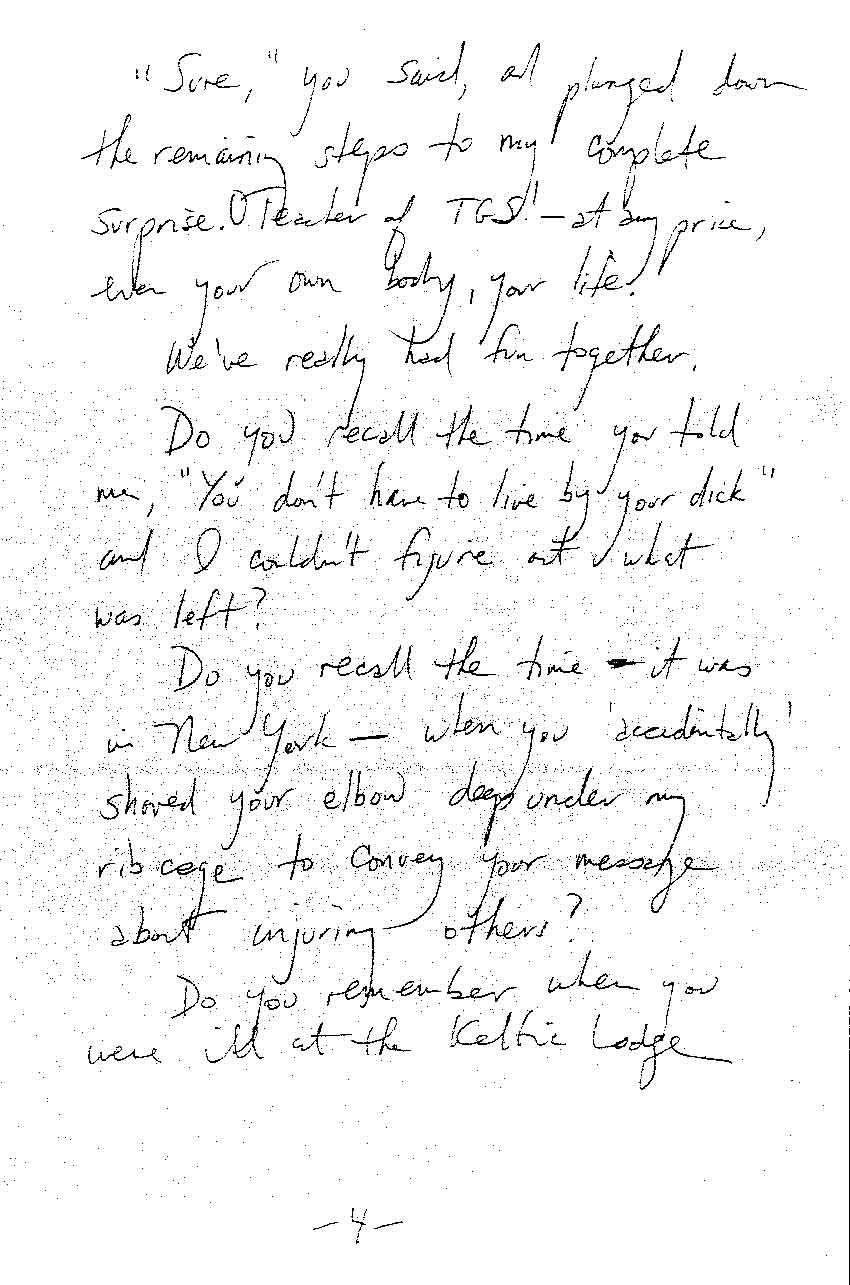 "Sure," you said, and plunged down
the remaining steps to my complete
surprise. O Teacher of TGS! — at any price,
even your own body, your life!
We've really had fun together.
Do you recall the time you told
me, "You don't have to live by your dick"
and I couldn't figure out what
was left?
Do you recall the time — it was
in New York — when you 'accidentally'
shoved your elbow deep under my
rib cage to convey your message
about injuring others?
Do you remember when you
were ill at the Keltic Lodge
— 4 —